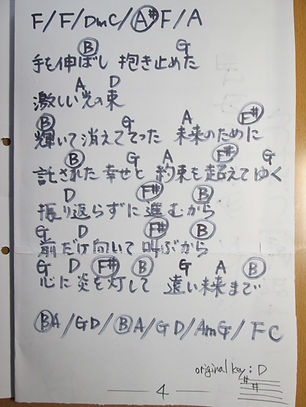 F/F/DmC/A#F/A
B G
手を伸ばし 抱き止めた
A D
激しい光の束
B G A F#
輝いて消えてった 未来のために
B G A F# G
託された幸せと 約束を超えてゆく
D F# B
振り返らずに進むから
G D F# B
前だけ向いて 叫ぶから
G D F# B G A B
心に炎を灯して 遠い未来まで
BA/GD/BA/GD/AmG/FC
original key: D
4